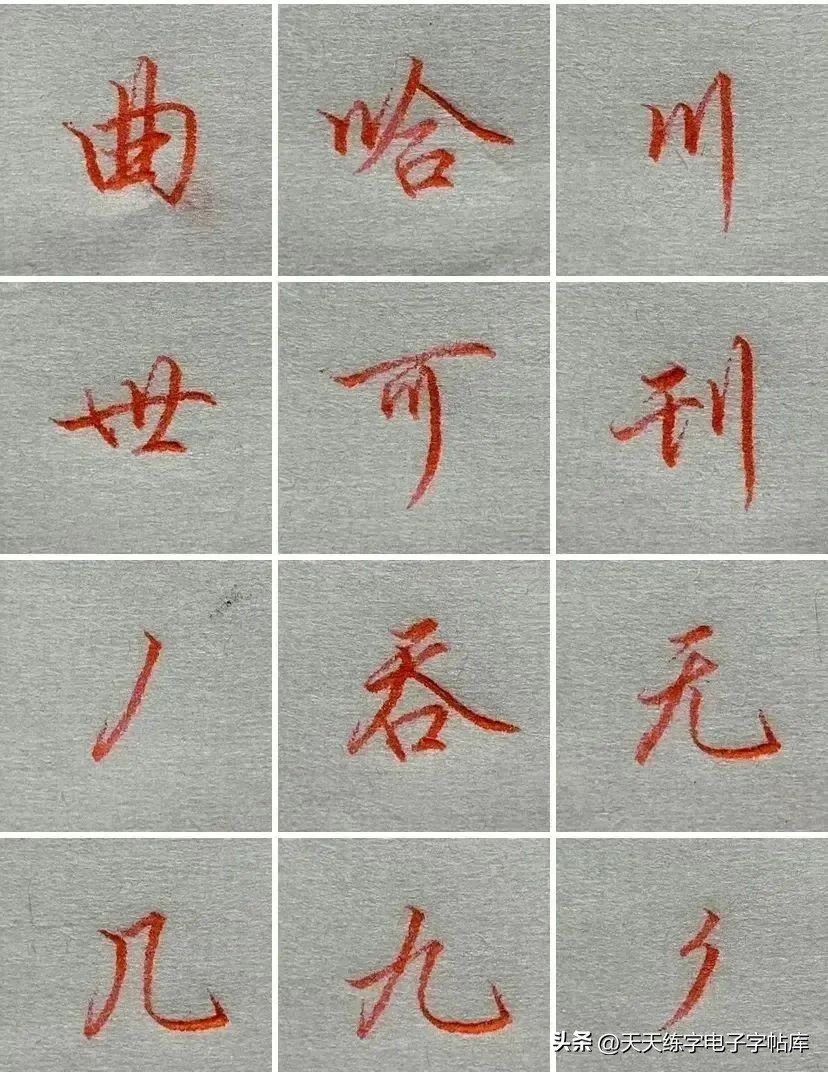 曲 哈 川
世 可 刊
丿 吞 无
几 九
头条 @天天练字电子字帖库